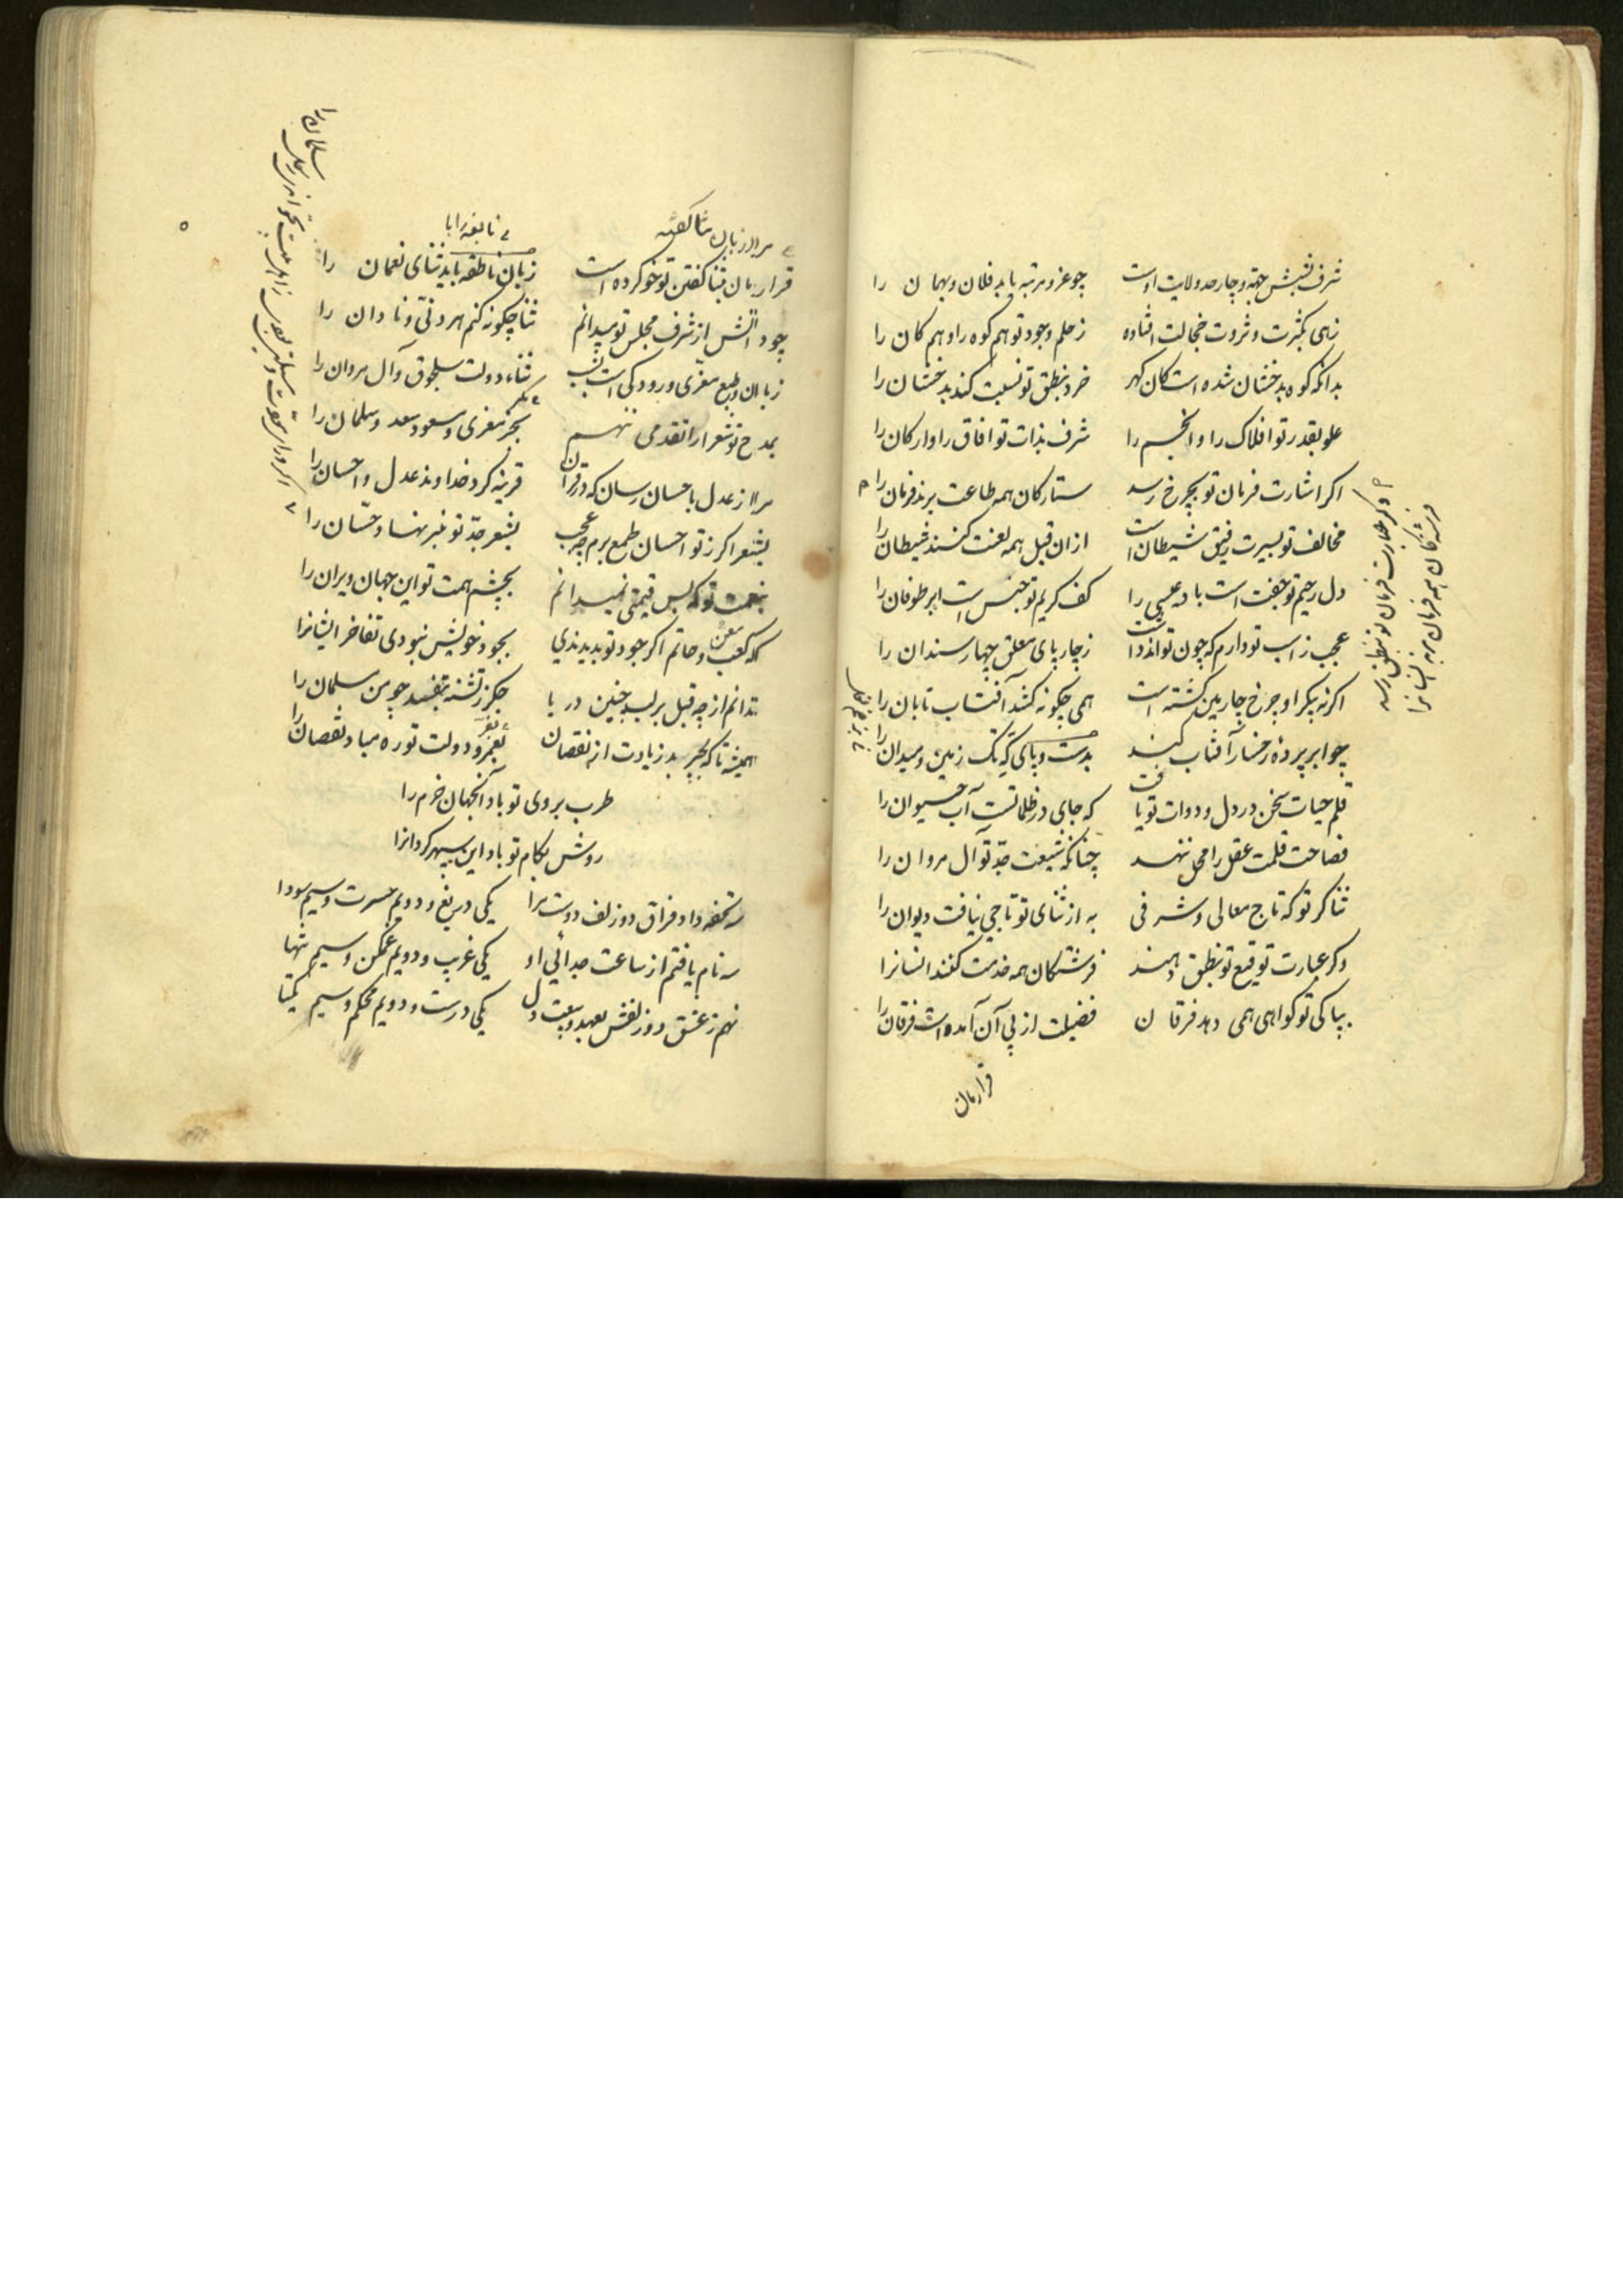 شرف بشش جهة و چار حد ولایت اوست چو عز و مرتبه یابد فلان و بهمان را
زهی بکثرت و ثروت خجالت افتاده ز حلم و جود تو هم کوه را و هم کان را
بدانکه کوه بدخشان شده است کان کهر خرد بنطق تو نسبت کند بدخشان را
علو بقدر تو افلاک را و انجم را شرف بذات تو افاق را و ارکان را
اکر اشارت فرمان تو بچرخ رسد ستارکان همه طاعت برند فرمان را
مخالف تو بسیرت رفیق شیطان است ازان قبل همه لعنت کنند شیطان را
دل رحیم تو جفت است باد عیسی را کف کریم تو جنس است ابر طوفان را
عجب ز اسب تو دارم که چون تواند داشت ز چار پای معلق چهار سندان را
اکر نه پیکر او چرخ چارمین کشته است همی چکونه کشد آفتاب تابان را
چو ابر پردۀ رخسار آفتاب کند بدست و پای که تک زمین و میدان را
قلم حیات سخن در دل و دوات تو یافت که جای در ظلماتست آب حیوان را
فصاحت قلمت عقل را محل ننهد چنانکه شیعت جد تو آل مروان را
ثنا کر تو که تاج معالی و شرفی به از ثنای تو تاجی نیافت دیوان را
وکر عبارت توقیع تو بنطق دهند فرشتکان همه خدمت کنند انسانرا
بپاکی تو کواهی همی دهد فرقان فضیلت از پی آن آمده است فرقان را
وکر عبارت فرمان تو بنطق رسد
فرشتکان همه فرمان برند انسانرا
قرار مان
مرا زبان ثنا کفته
نابغه را با
قرار مان بثنا کفتن تو خو کرده است زبان ناطقه باید ثنای نعمان را
چو دانش از شرف مجلس تو میدانم ثنا چکونه کنم هر دنی و نادان را
زبان و طبع معزی و رودکی است ثنای دولت سلجوق و آل مروان را
بمدح تو شعرا را تقدمی ننهم بجز معزی و مسعود سعد و سلمان را
مرا ز عدل باحسان رسان که در قرآن قرینه کرد خداوند عدل و احسان را
بشعر اکر ز تو احسان طمع برم چه عجب بشعر جد تو منبر نهاد حسان را
بچشم همت تو این جهان ویران را
که کعب و حاتم اکر جود تو بدیدندی بجود خویش نبودی تفاخر ایشانرا
ندانم از چه قبل بر لب چنین دریا جکر ز تشنه بتفسد چو من سلمان را
همیشه تا که بچربد زیادت از نقصان بعز و دولت تو ره مباد نقصان را
طرب بروی تو باد آنجهان خرم را
روش بکام تو باد این سپهر کردانرا
سه تحفه داد فراق دو زلف دوست مرا یکی دریغ و دویم حسرت و سیم سودا
سه نام یافتم از ساعت جدائی او یکی غریب و دویم غمکن و سیم تنها
نهم ز عشق دو زلفش بعهد و بیعت دل یکی درست و دویم محکم و سیم یکتا